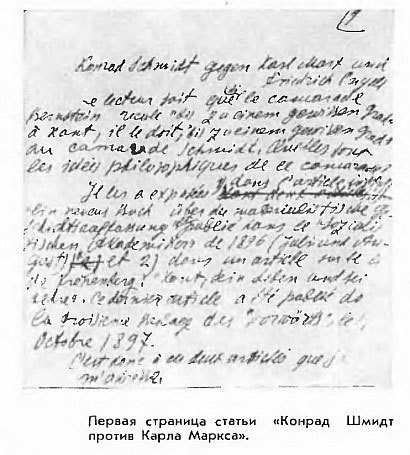 1
Konrad Schmidt gegen Karl Marx und
Friedrich Engels
Le lecteur sait que le camarade
Bernstein recule bis zu einem gewissen Grade
à Kant, il le doit, bis zu einem gewissen Grade
au camarade Schmidt. Quelles sont
les idées philosophiques de ce camarade
Il les a exposées dans l'article
Ein neues Buch über die materialistische Ge-
schichtsauffassung publié dans le Soziali-
tischen Akademiker de 1896 (Juli und Au-
gust) et 2) dans un article sur le
Kronenberg: Kant, sein Leben und sei
Lehre. Ce dernier article a été publié dans
la troisième Beilage des "Vorwärts", le
Octobre 1897.
C'est donc à ces deux articles que je
m'arrête.
Первая страница статьи «Конрад Шмидт
против Карла Маркса».